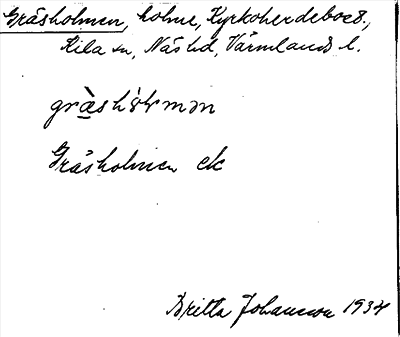 Gräsholmen, holme, Kyrkoherdebost.,
Kila sn, Näs hd, Värmlands l.
Gräsholmen ek
Britta Johansson 1934